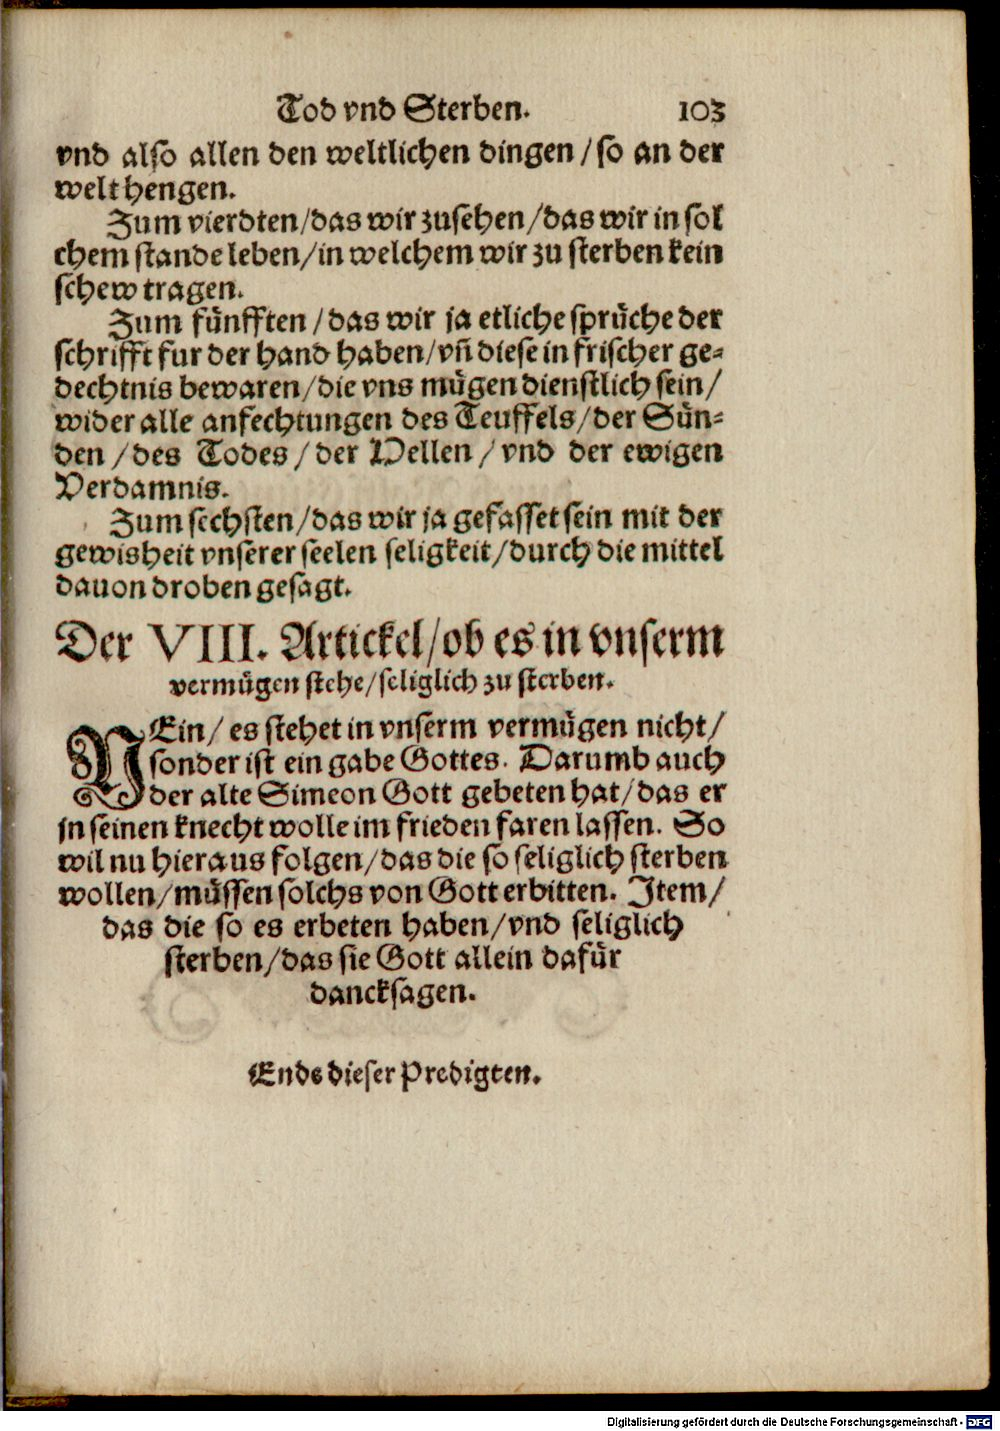 Tod vnd Sterben. 103
vnd also allen den weltlichen dingen / so an der
welt hengen.
Zum vierdten/das wir zusehen/das wir in sol
chem stande leben/in welchem wir zu sterben kein
schew tragen.
Zum fünfften /das wir ja etliche sprüche der
schrifft fur der hand haben/vñ diese in frischer ge-
dechtnis bewaren/die vns mügen dienstlich sein/
wider alle anfechtungen des Teuffels/der Sün-
den /des Todes/ der Hellen / vnd der ewigen
Verdamnis.
Zum sechsten/das wir ja gefasset sein mit der
gewisheit vnserer seelen seligkeit/durch die mittel
dauon droben gesagt.
Der VIII. Artickel/ob es in vnserm
vermügen stehe/seliglich zu sterben.
NEin/ es stehet in vnserm vermügen nicht/
sonder ist ein gabe Gottes. Darumb auch
der alte Simeon Gott gebeten hat/das er
jn seinen knecht wolle im frieden faren lassen. So
wil nu hieraus folgen/das die so seliglich sterben
wollen/müssen solchs von Gott erbitten. Item/
das die so es erbeten haben/vnd seliglich
sterben/das sie Gott allein dafür
dancksagen.
Ende dieser Predigten.
Digitalisierung gefördert durch die Deutsche Forschungsgemeinschaft - DFG